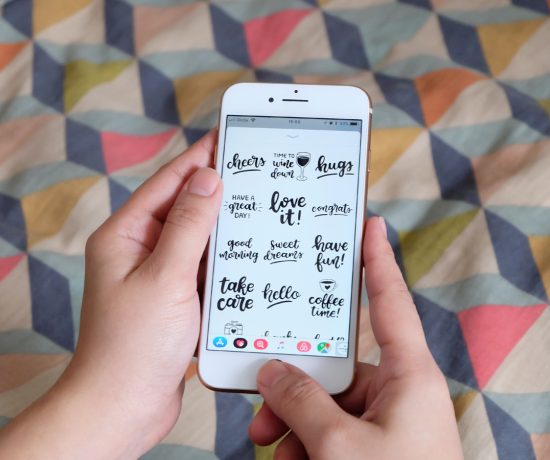 cheers
TIME TO
wine
down
hugs
HAVE A
great
DAY!
love
it!
congrats
good
morning
sweet
dreams
have
fun!
take
care
hello
coffee
time!